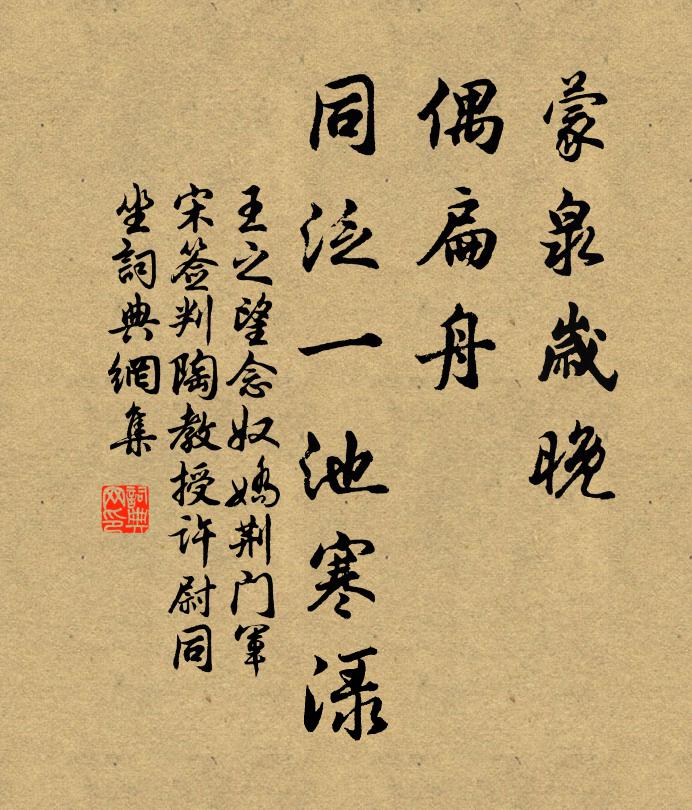 蒙泉歲晚
偶扁舟
同泛一池寒渌
王之望念奴嬌荆门軍
宋簽判陶教授许尉同
坐詞典網集
詞典
网印